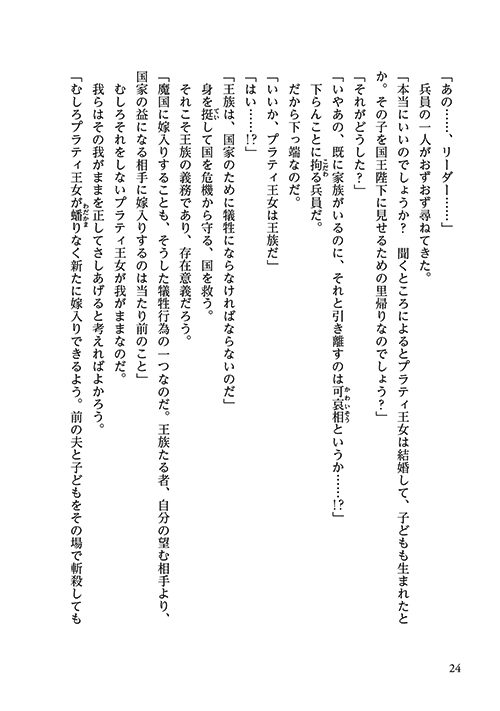 「あの……、リーダー……」
　兵員の一人がおずおず尋ねてきた。
「本当にいいのでしょうか？　聞くところによるとプラティ王女は結婚して、子どもも生まれたと
か。その子を国王陛下に見せるための里帰りなのでしょう？」
「それがどうした？」
「いやあの、既に家族がいるのに、それと引き離すのは可哀相というか……!?」
　下らんことに拘る兵員だ。
　だから下っ端なのだ。
「いいか、プラティ王女は王族だ」
「はい……!?」
「王族は、国家のために犠牲にならなければならないのだ」
　身を挺して国を危機から守る、国を救う。
　それこそ王族の義務であり、存在意義だろう。
「魔国に嫁入りすることも、そうした犠牲行為の一つなのだ。王族たる者、自分の望む相手より、
国家の益になる相手に嫁入りするのは当たり前のこと」
　むしろそれをしないプラティ王女が我がままなのだ。
　我らはその我がままを正してさしあげると考えればよかろう。
「むしろプラティ王女が蟠りなく新たに嫁入りできるよう。前の夫と子どもをその場で斬殺しても
24